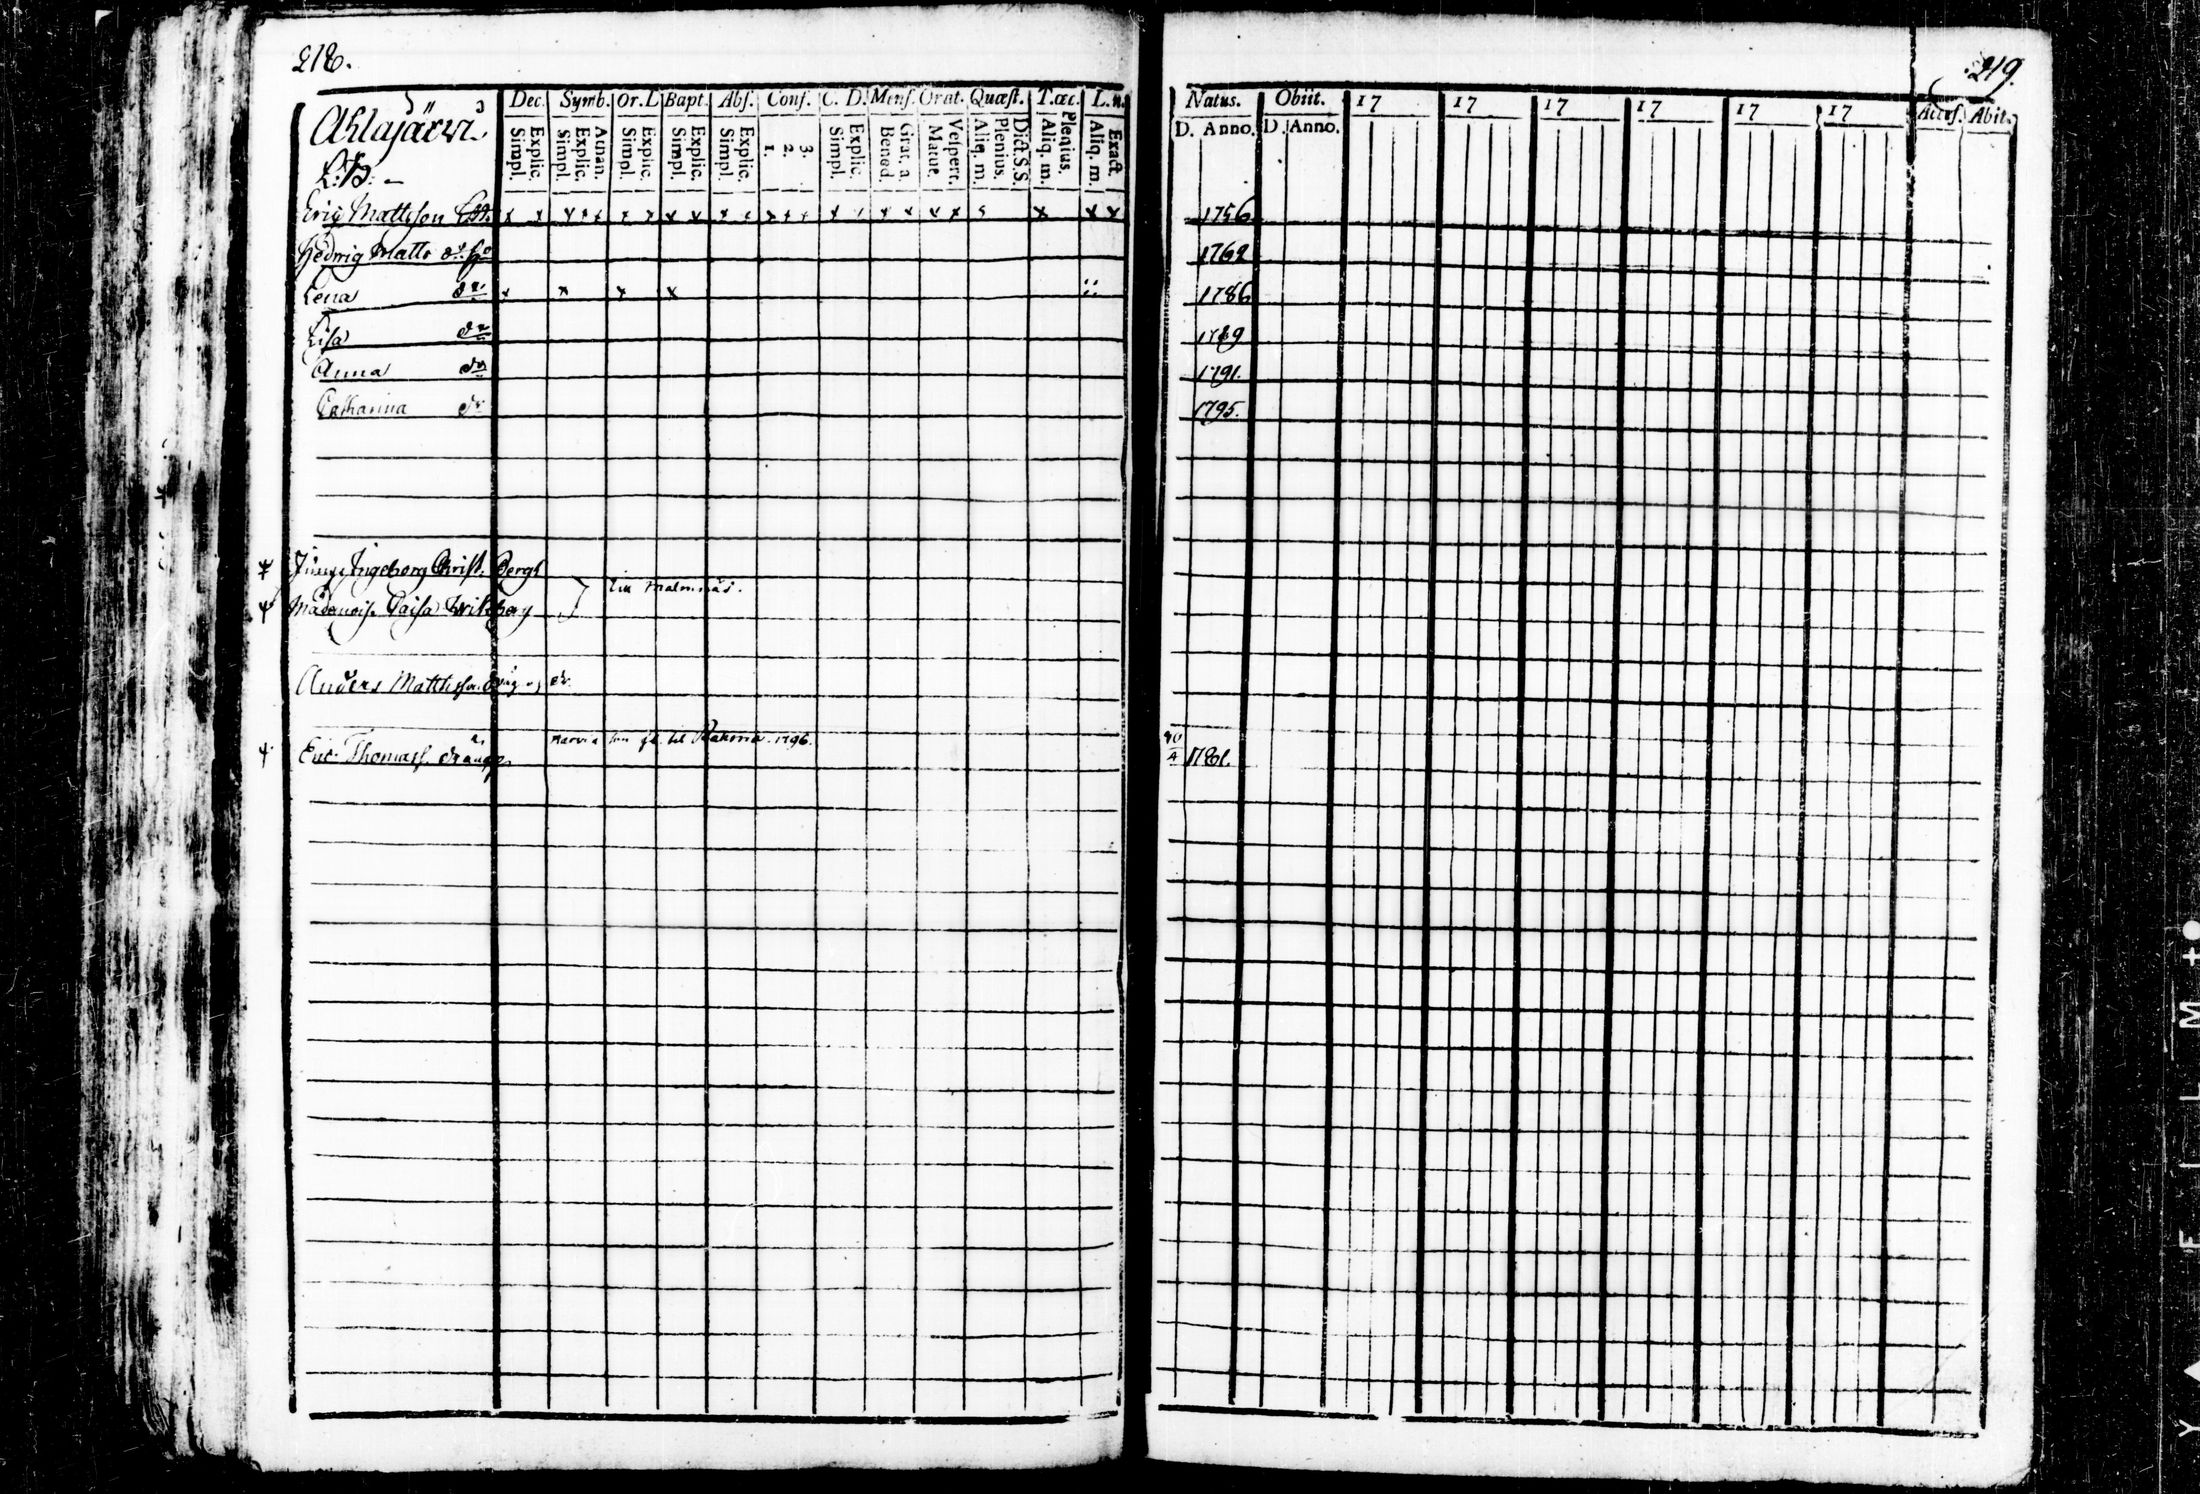 218.
219.
Dec. Symb. Or. D Bapt. Abs. Conf. C. D. Mens. Orat. Quæst. T. œc. L. n.
Simpl. Explic. Simpl. Explic. Atnan. Simpl. Explic. Simpl. Explic. Simpl. Explic. 1. 2. 3. Simpl. Explic. Bened. Grat. a. Matut. Vespert. Aliq. m. Plenius. Dict. S.S. Aliq. m. Plenius. Aliq. m. Exact.
Natus. Obiit. 17 17 17 17 17 17 Access. Abit.
D. Anno. D. Anno.
Ahlajärvi
Eric Mattsson 1756
Hedvig Matts 1762
Lena dr 1786
Lisa dr 1789
Anna dr 1791.
Catharina dr 1795.
Ingeborg Christ. Berg
till Malmnäs.
Mademois. Caisa
Anders Matthss.
til 1796.
Eric Thomass. dräng 1781.